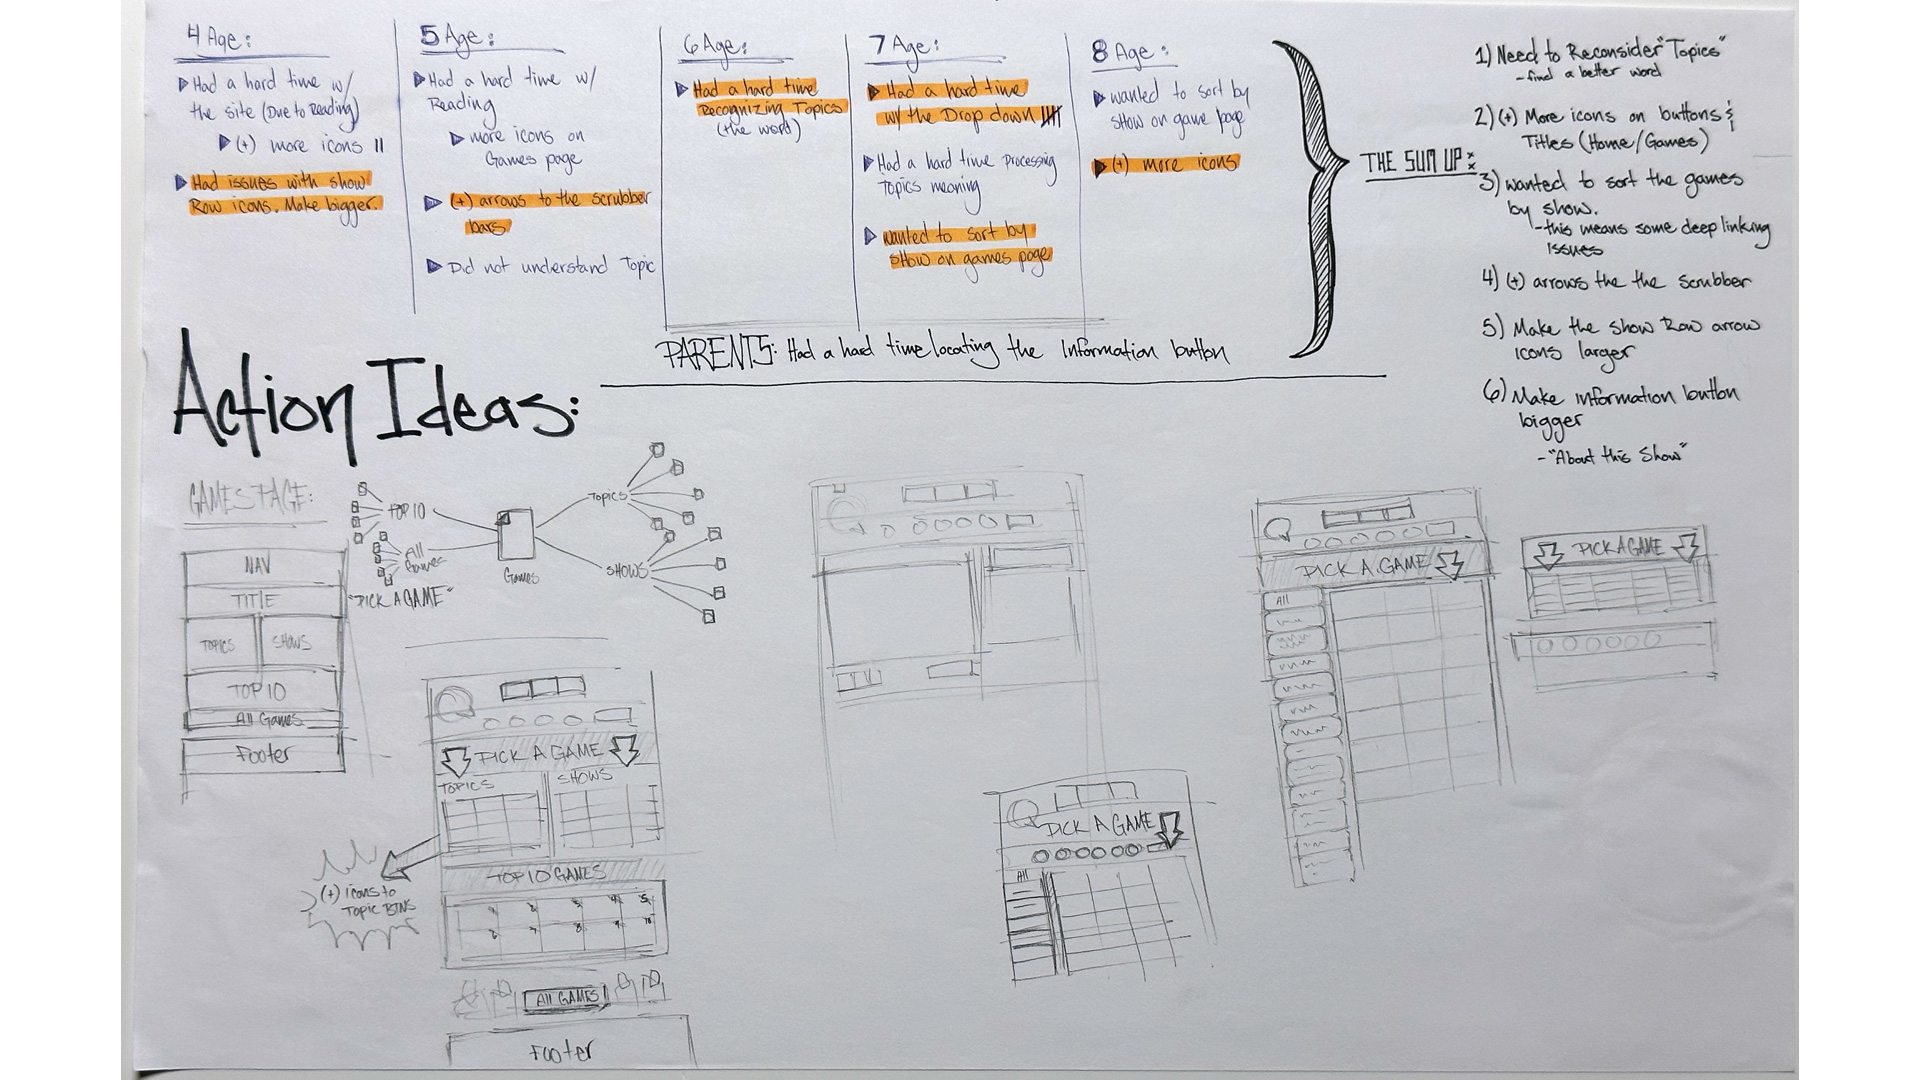 4 Age:
▷Had a hard time w/
the site (Due to Reading)
▷(+) more icons II
▷Had issues with show
Row icons. Make bigger.
5 Age:
▷Had a hard time w/
Reading
▷more icons on
Games page
▷(+) arrows to the scrubber
bars
▷Did not understand Topic
6 Age:
▷Had a hard time
Recognizing Topics
(the word)
7 Age:
▷Had a hard time
w/ the Drop down
▷Had a hard time Processing
Topics meaning
▷wanted to sort by
SHow on games page
8 Age:
▷wanted to sort by
SHow on game page
▷(+) more icons
PARENTS: Had a hard time locating the Information button
THE SUM UP:
1) Need to Reconsider "Topics"
-find a better word
2) (+) More icons on buttons &
Titles (Home/Games)
3) wanted to sort the games
by show.
-this means some deep linking
issues
4) (+) arrows the the scrubber
5) Make the show Row arrow
icons larger
6) Make information button
bigger
-"About this Show"
Action Ideas:
GAMES PAGE:
NAV
TITLE
TOPICS
SHOWS
TOP 10
All Games
Footer
TOP 10
All
Games
"PICK A GAME"
Games
TOPICS
SHOWS
PICK A GAME
TOPICS
SHOWS
(+) Icons to
Topic BTNS
TOP 10 GAMES
1 2 3 4 5
6 7 8 9 10
All GAMES
Footer
PICK A GAME
All
PICK A GAME
All
PICK A GAME